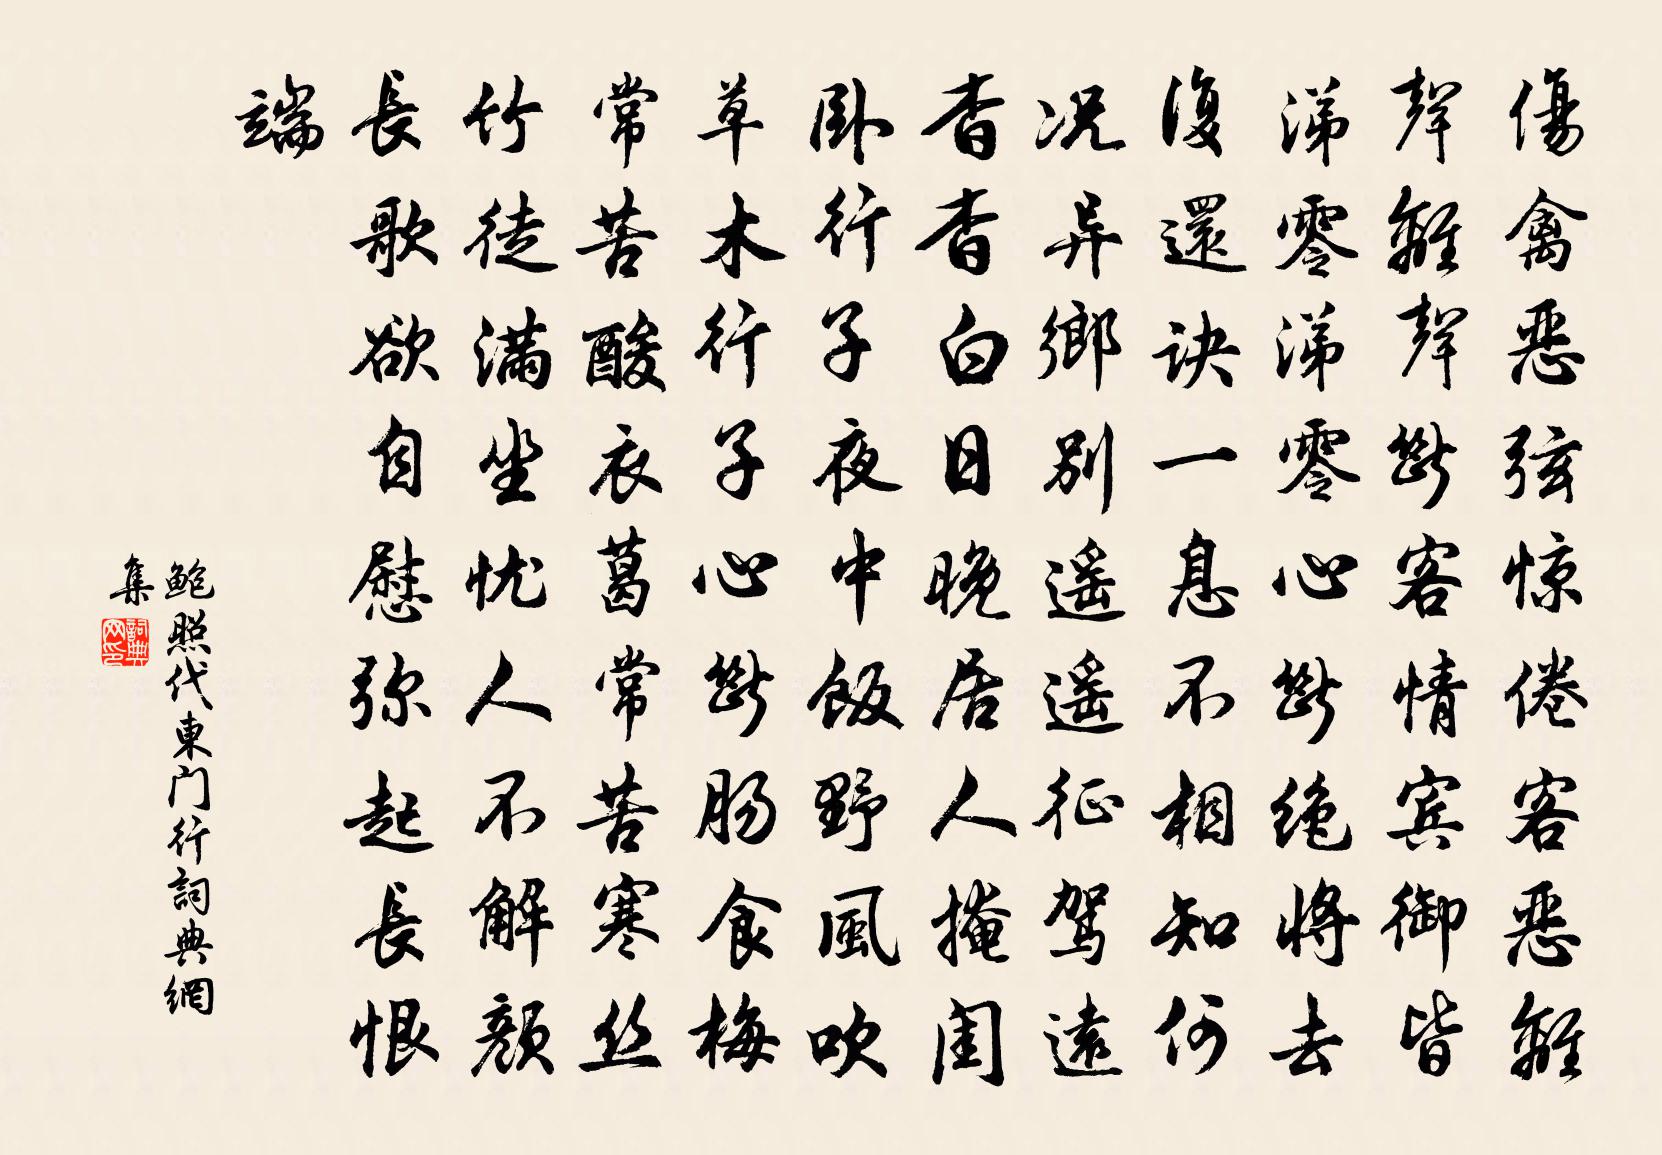 傷禽恶弦惊倦客恶離
聲離聲斷客情宾御皆
涕零涕零心斷绝將去
復還訣一息不相知何
况异鄉别遥遥征駕遠
杳杳白日晚居人掩闺
卧行子夜中飯野風吹
草木行子心斷肠食梅
常苦酸衣葛常苦寒丝
竹徒满坐忧人不解颜
長歌欲自慰弥起長恨
端
鲍照代東门行詞典網
集
詞典
网印